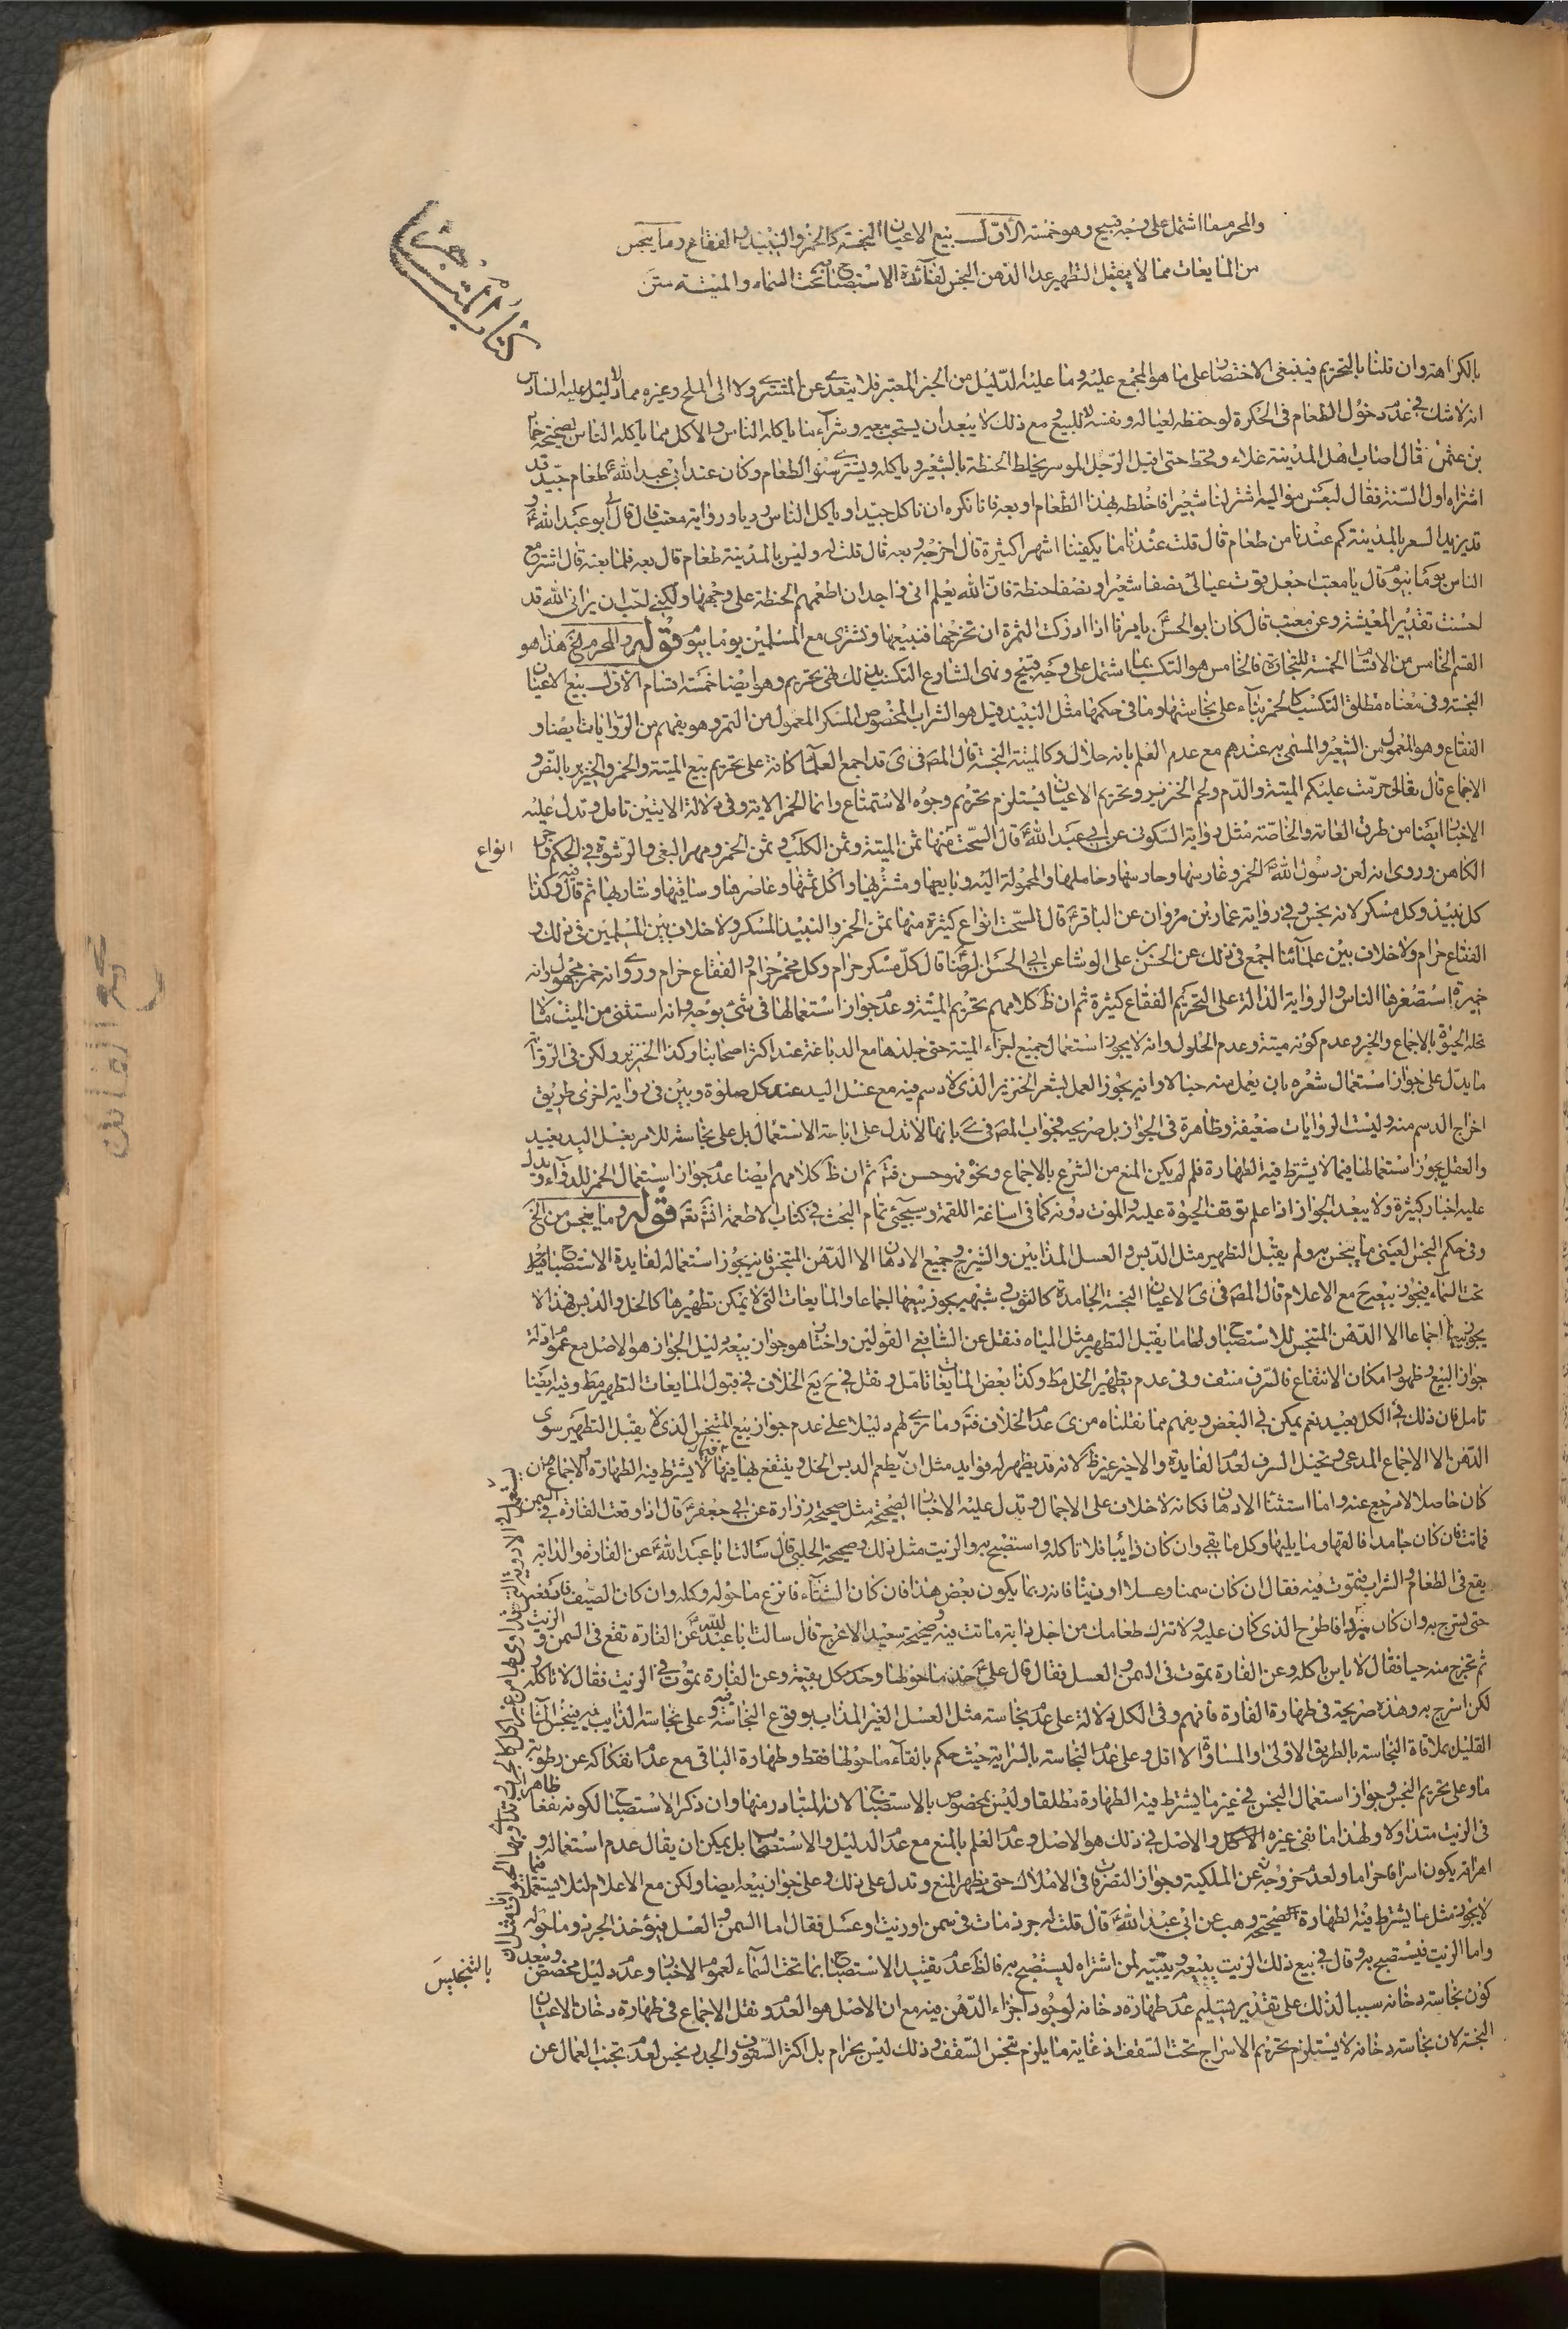 كتاب المتاجر
والمحرم ما اشتمل على وجه قبيح وهو خمسة الأوّل بيع الاعيان النجسة كالخمر والنبيذ والفقاع وما ينجس
من المايعات مما لا يقبل التطهير عدا الدهن النجس لفائدة الاستصباح تحت السماء والميتة متن
بالكراهة وان قلنا بالتحريم فينبغى الاختصار على ما هو المجمع عليه وما عليه الدليل من الخبر المعتبر فلا يتعدى عن المشترى ولا الى الملح وغيره مما لا دليل عليه السادس
انه لا شك فى عدم دخول الطعام فى الحكرة لو حفظه لعياله ونفسه لا للبيع ومع ذلك لا يبعد ان يستحب بيعه وشراء ما ياكله الناس والاكل مما ياكله الناس لصحيحة حماد
بن عثمن قال اصاب اهل المدينة غلاء وقحط حتى اقبل الرّجل الموسر يخلط الحنطة بالشعير وياكله ويشترى ببعض الطعام وكان عند ابى عبد الله طعام جيّد قد
اشتراه اول السّنة فقال لبعض مواليه اشتر لنا شعيرا فاخلطه بهذا الطّعام او بعه فانا نكره ان ناكل جيّدا وياكل الناس رديا ورواية معتب قال قال لى ابو عبد الله و
قد يزيد السعر بالمدينة كم عندنا من طعام قال قلت عندنا ما يكفينا اشهرا كثيرة قال اخرجه وبعه قال قلت له وليس بالمدينة طعام قال بعه فلما بعته قال اشتر مع
الناس يوما بيوم وقال يا معتب اجعل قوت عيالى نصفا شعيرا ونصفا حنطة فان الله يعلم انى واجد ان اطعمهم الحنطة على وجهها ولكنى احبّ ان يرانى الله قد
احسنت تقدير المعيشة وعن معتب قال كان ابو الحسن يامرنا اذا ادركت الثمرة ان نخرجها فنبيعها ونشترى مع المسلمين يوما بيوم قوله والمحرم الخ هذا هو
القسم الخامس من الاقسام الخمسة للتجارة فالخامس هو التكسب بما اشتمل على وجه قبيح ونهى الشارع التكسب بذلك نهى تحريم وهو ايضا خمسة اقسام الاول بيع الاعيان
النجسة وفى معناه مطلق التكسب كالخمر بناء على نجاستها وما فى حكمها مثل النبيذ قيل هو الشراب المخصوص المسكر المعمول من التمر وهو يفهم من الرّوايات ايضا و
الفقاع وهو المعمول من الشعير والمسمى به عندهم مع عدم العلم بانه حلال وكالميتة النجسة قال المص فى ى قد اجمع العلماء كافة على تحريم بيع الميتة والخمر والخنزير بالنص و
الاجماع قال تعالى حرّمت عليكم الميتة والدّم ولحم الخنزير وتحريم الاعيان يستلزم تحريم وجوه الاستمتاع وانما الخمر الاية وفى دلالة الايتين تامل وتدل عليه
الاخبار ايضا من طرق العامة والخاصة مثل رواية السّكونى عن ابى عبد الله قال السّحت ثمن الميتة وثمن الكلب وثمن الخمر ومهر البغى والرشوة فى الحكم واجر
انواع
الكاهن وروى انه لعن رسول الله الخمر وغارسها وحارسها وحاملها والمحمولة اليه وبايعها ومشتريها واكل ثمنها وعاصرها وساقيها وشاربها ثم قال وكذا
كل نبيذ وكل مسكر لانه نجس وفى رواية عمار بن مروان عن الباقر قال السّحت انواع كثيرة منها ثمن الخمر والنبيذ المسكر ولا خلاف بين المسلمين فى ذلك و
الفقاع حرام ولا خلاف بين علمائنا اجمع فى ذلك عن الحسن بن على الوشا عن ابى الحسن الرضا قال كلّ مسكر حرام وكل مخمّر حرام والفقاع حرام وروى انه خمر مجهول وانه
خميرة استصغرها الناس والرواية الدالة على التحريم الفقاع كثيرة ثم ان ظ كلامهم تحريم الميتة وعدم جواز استعمالها فى شئ بوجه وانه استثنى من الميت ما لا
تحله الحيوة بالاجماع والخبر وعدم كونه ميتة وعدم الحلول وانه لا يجوز استعمال جميع اجزاء الميتة حتى جلدها مع الدباغة عند اكثر اصحابنا وكذا الخنزير ولكن فى الرّوايات
ما يدلّ على جواز استعمال شعره بان يعمل منه حبالا وانه يجوز العمل بشعر الخنزير الذى لا دسم فيه مع غسل اليد عند كل صلوة وبيّن فى رواية اخرى طريق
اخراج الدسم منه وليست الروايات ضعيفة وظاهرة فى الجواز بل صريحة فجواب المص فى بانها لا تدل على اباحة الاستعمال بل على نجاسته للامر بغسل اليد بعيد
والعقل يجوز استعمالها فيما لا يشترط فيه الطهارة فلم لم يكن المنع من الشرع بالاجماع ونحوه فهو حسن فتم ثم ان ظ كلامهم ايضا عدم جواز استعمال الخمر للدواء ويدل
عليه اخبار كثيرة ولا يبعد الجواز اذا علم توقف الحيوة عليه والموت دونه كما فى اساغة اللقمة وسيجئ تمام البحث فى كتاب الاطعمة انش تعه قوله وما ينجس من الخ
وفى حكم النجس العينى ما ينجس به ولم يقبل التطهير مثل الدّبس والعسل المذابين والشيرج وجميع الادهان الا الدّهن المتنجس فانه يجوز استعماله لفايدة الاستصباح فقط
تحت السّماء فيجوز بيعه ح مع الاعلام قال المص فى ى الاعيان النجسة الجامدة كالثوب وشبهه يجوز بيعها اجماعا والمايعات التى لا يمكن تطهيرها كالخل والدبس فهذا لا
يجوز بيعها اجماعا الا الدّهن المتنجس للاستصباح واما ما يقبل التطهير مثل المياه فنقل عن الشافعى القولين واختار هو جواز بيعه ودليل الجواز هو الاصل مع عموم ادلة
جواز البيع وظهور امكان الانتفاع فالسرف منتف وفى عدم تطهير الخل مط وكذا بعض المايعات تامّل ونقل فى بحث بيع الخلاف فى قبول المايعات التطهير مط وفيه ايضا
تامل فان ذلك فى الكل بعيد نعم يمكن فى البعض ويفهم مما نقلناه من ى عدم الخلاف فتم وما نرى لهم دليلا على عدم جواز بيع المتنجس الذى لا يقبل التطهير سوى
الدّهن الا الاجماع المدعى وتخيل السرف لعدم الفايدة والاخير غير ظ لانه قد يظهر له فوايد مثل ان يطعم الدبس النحل وينتفع بها فيما لا يشترط فيه الطهارة والاجماع ان
كان حاصلا لا مرجع عنه واما استثناء الادهان فكانه لا خلاف على الاجمال وتدل عليه الاخبار الصّحيحة مثل صحيحة زرارة عن ابى جعفر قال اذا وقعت الفارة فى السمن
فماتت فان كان جامدا فالقها وما يليها وكل ما بقى وان كان ذايبا فلا تاكله واستصبح به والزيت مثل ذلك وصحيحة الحلبى قال سالت ابا عبد الله عن الفارة والدابة
يقع فى الطعام والشراب فتموت فيه فقال ان كان سمنا او عسلا او زيتا فانه ربما يكون بعض هذا فان كان الشتاء فانزع ما حوله وكله وان كان الصّيف فادفعه
حتى يسرج به وان كان بردا فاطرح الذى كان عليه ولا تترك طعامك من اجل دابة ماتت فيه وصحيحة سعيد الاعرج قال سالت ابا عبد الله عن الفارة تقع فى السمن و الزيت
ثم تخرج منه حيا فقال لا باس باكله وعن الفارة تموت فى السمن والعسل فقال قال على خذ ما حولها وكل بقيته وعن الفارة تموت فى الزيت فقال لا تاكله و
لكن اسرج به وهذه صريحة فى طهارة الفارة فافهم وفى الكل دلالة على عدم نجاسته مثل العسل الغير المذاب بوقوع النجاسة فيه وعلى نجاسة الذايب به فينجس الماء
القليل بملاقاة النجاسة بالطريق الاولى والمساوى لا اقل وعلى عدم النجاسة بالسراية حيث حكم بالقاء ما حولها فقط وطهارة الباقى مع عدم انفكاكه عن رطوبة
ما وعلى تحريم النجس وجواز استعمال النجس فى غير ما يشترط فيه الطهارة مطلقا وليس بمخصوص بالاستصباح لانه المتبادر منها وان ذكر الاستصباح لكونه نفعا ظاهرا
فى الزيت متداولا ولهذا ما نفى غيره الا الاكل والاصل فى ذلك هو الاصل وعدم العلم بالمنع مع عدم الدليل والاستصحاب بل يمكن ان يقال عدم استعماله و
اهراقه يكون اسرافا حراما ولعدم خروجه عن الملكية وجواز التصرف فى الاملاك حتى يظهر المنع وتدل على ذلك وعلى جواز بيعه ايضا ولكن مع الاعلام لئلا يستعمل فيما
لا يجوز مثل ما يشترط فيه الطهارة صحيحة وهب عن ابى عبد الله قال قلت له جرذ مات فى سمن او زيت او عسل فقال اما السمن والعسل فيؤخذ الجرذ وما حوله
واما الزيت فيستصبح به وقال فى بيع ذلك الزيت يبيعه ويبيّنه لمن اشتراه ليستصبح به فالظ عدم تقييد الاستصباح بما تحت السّماء لعموم الاخبار وعدم دليل مخصص وبعد
كون نجاسة دخانه سببا لذلك على تقدير تسليم عدم طهارة دخانه لوجود اجزاء الدّهن فيه مع ان الاصل هو العدم ونقل الاجماع فى طهارة دخان الاعيان
النجسة لان نجاسة دخانه لا يستلزم تحريم الاسراج تحت السّقف اذ غاية ما يلزم تنجس السّقف وذلك ليس بحرام بل اكثر السّقوف والجدر نجس لعدم تجنب العمال عن
بالتنجيس